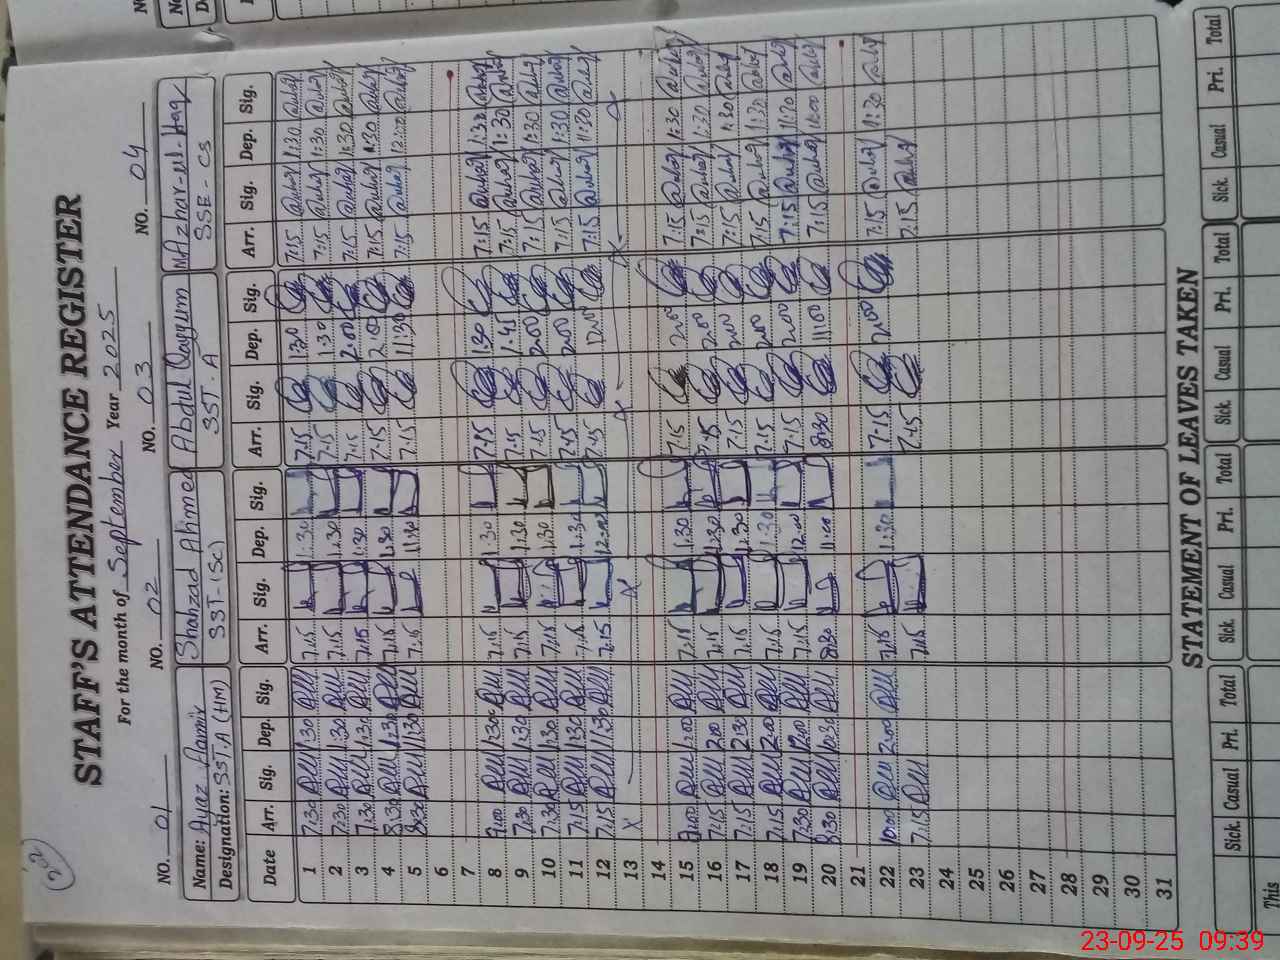 202
STAFF'S ATTENDANCE REGISTER
For the month of September Year 2025
NO. 01 NO. 02 NO. 03 NO. 04
Name: Ayaz Shahzad Ahmed Abdul Qayyum M Azhar-ul-Haq
Designation: SST.A (HM) SST-(Sc) SST.A SSE-CS
Date Arr. Sig. Dep. Sig. Arr. Sig. Dep. Sig. Arr. Sig. Dep. Sig. Arr. Sig. Dep. Sig.
1 7:30 1:30 7:15 1:30 7:15 1:30 7:15 1:30
2 7:30 1:30 7:15 1:30 7:15 1:30 7:15 1:30
3 7:30 1:30 7:15 1:30 7:15 2:00 7:15 1:30
4 8:30 1:30 7:15 1:30 7:15 2:00 7:15 1:30
5 8:30 11:30 7:15 11:30 7:15 11:30 7:15 12:00
6
7
8 9:00 1:30 7:15 1:30 7:15 1:30 7:15 1:30
9 7:30 1:30 7:15 1:30 7:15 1:45 7:15 1:30
10 7:30 1:30 7:15 1:30 7:15 2:00 7:15 1:30
11 7:15 1:30 7:15 1:30 7:15 2:00 7:15 1:30
12 7:15 11:30 7:15 12:00 7:15 12:00 7:15 11:30
13 X
14
15 1:00 7:15 1:30 7:15 2:00 7:15 1:30
16 7:15 2:00 7:15 1:30 7:15 2:00 7:15 1:30
17 7:15 2:30 7:15 1:30 7:15 2:00 7:15 1:30
18 7:15 2:00 7:15 1:30 7:15 2:00 7:15 1:30
19 7:30 12:00 7:15 12:00 7:15 2:00 7:15
20 8:30 10:30 8:30 11:00 8:30 11:00 7:15 11:00
21
22 10:00 2:00 7:15 1:30 7:15 2:00 7:15 1:30
23 7:15 7:15 7:15 7:15
24
25
26
27
28
29
30
31
STATEMENT OF LEAVES TAKEN
Sick. Casual Pri. Total Sick. Casual Pri. Total Sick. Casual Pri. Total Sick. Casual Pri. Total
This
23-09-25 09:39